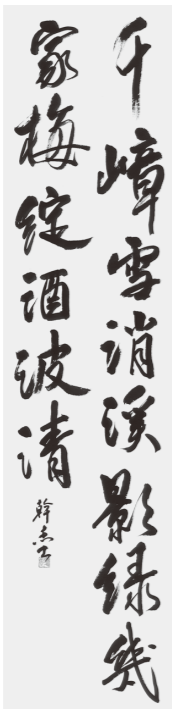 千嶂雪消溪影緑幾
家梅綻酒波清